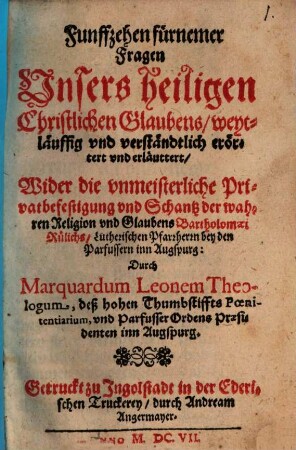 1.
Funffzehen fürnemer
Fragen
Vnsers heiligen
Christlichen Glaubens/ weyt-
läuffig vnd verständtlich erör-
tert vnd erläuttert/
Wider die vnmeisterliche Pri-
vatbefestigung vnd Schantz der wah-
ren Religion vnd Glaubens Bartholomæi
Rülichs/ Lutherischen Pfarrherrn bey den
Parfussern inn Augspurg:
Durch
Marquardum Leonem Theo-
logum, deß hohen Thumbstiffts Pœni-
tentiarium, vnd Parfusser Ordens Præsi-
denten inn Augspurg.
Getruckt zu Ingolstadt in der Ederi-
schen Truckerey/ durch Andream
Angermayer.
NNO M. DC. VII.